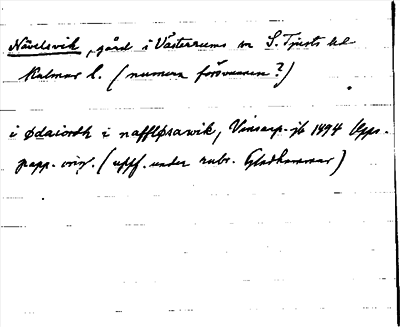 Nävelsvik, gård i Västerums sn S. Tjusts hd
Kalmar l. (numera försvunnen?)
i ødaiordh i naffløsawik, Vinsarp-jb 1494 Upps.
papp. orig. (uppf. under rubr. Gladhammar)